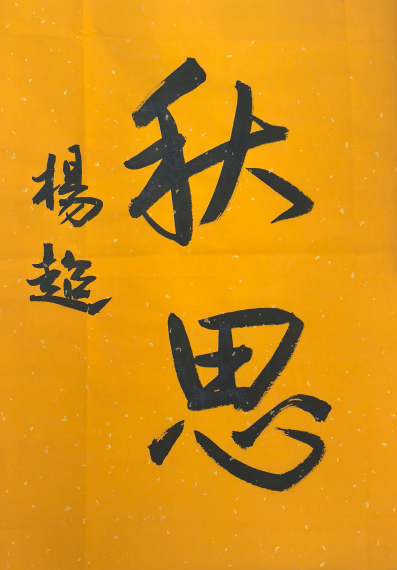 秋思
楊超